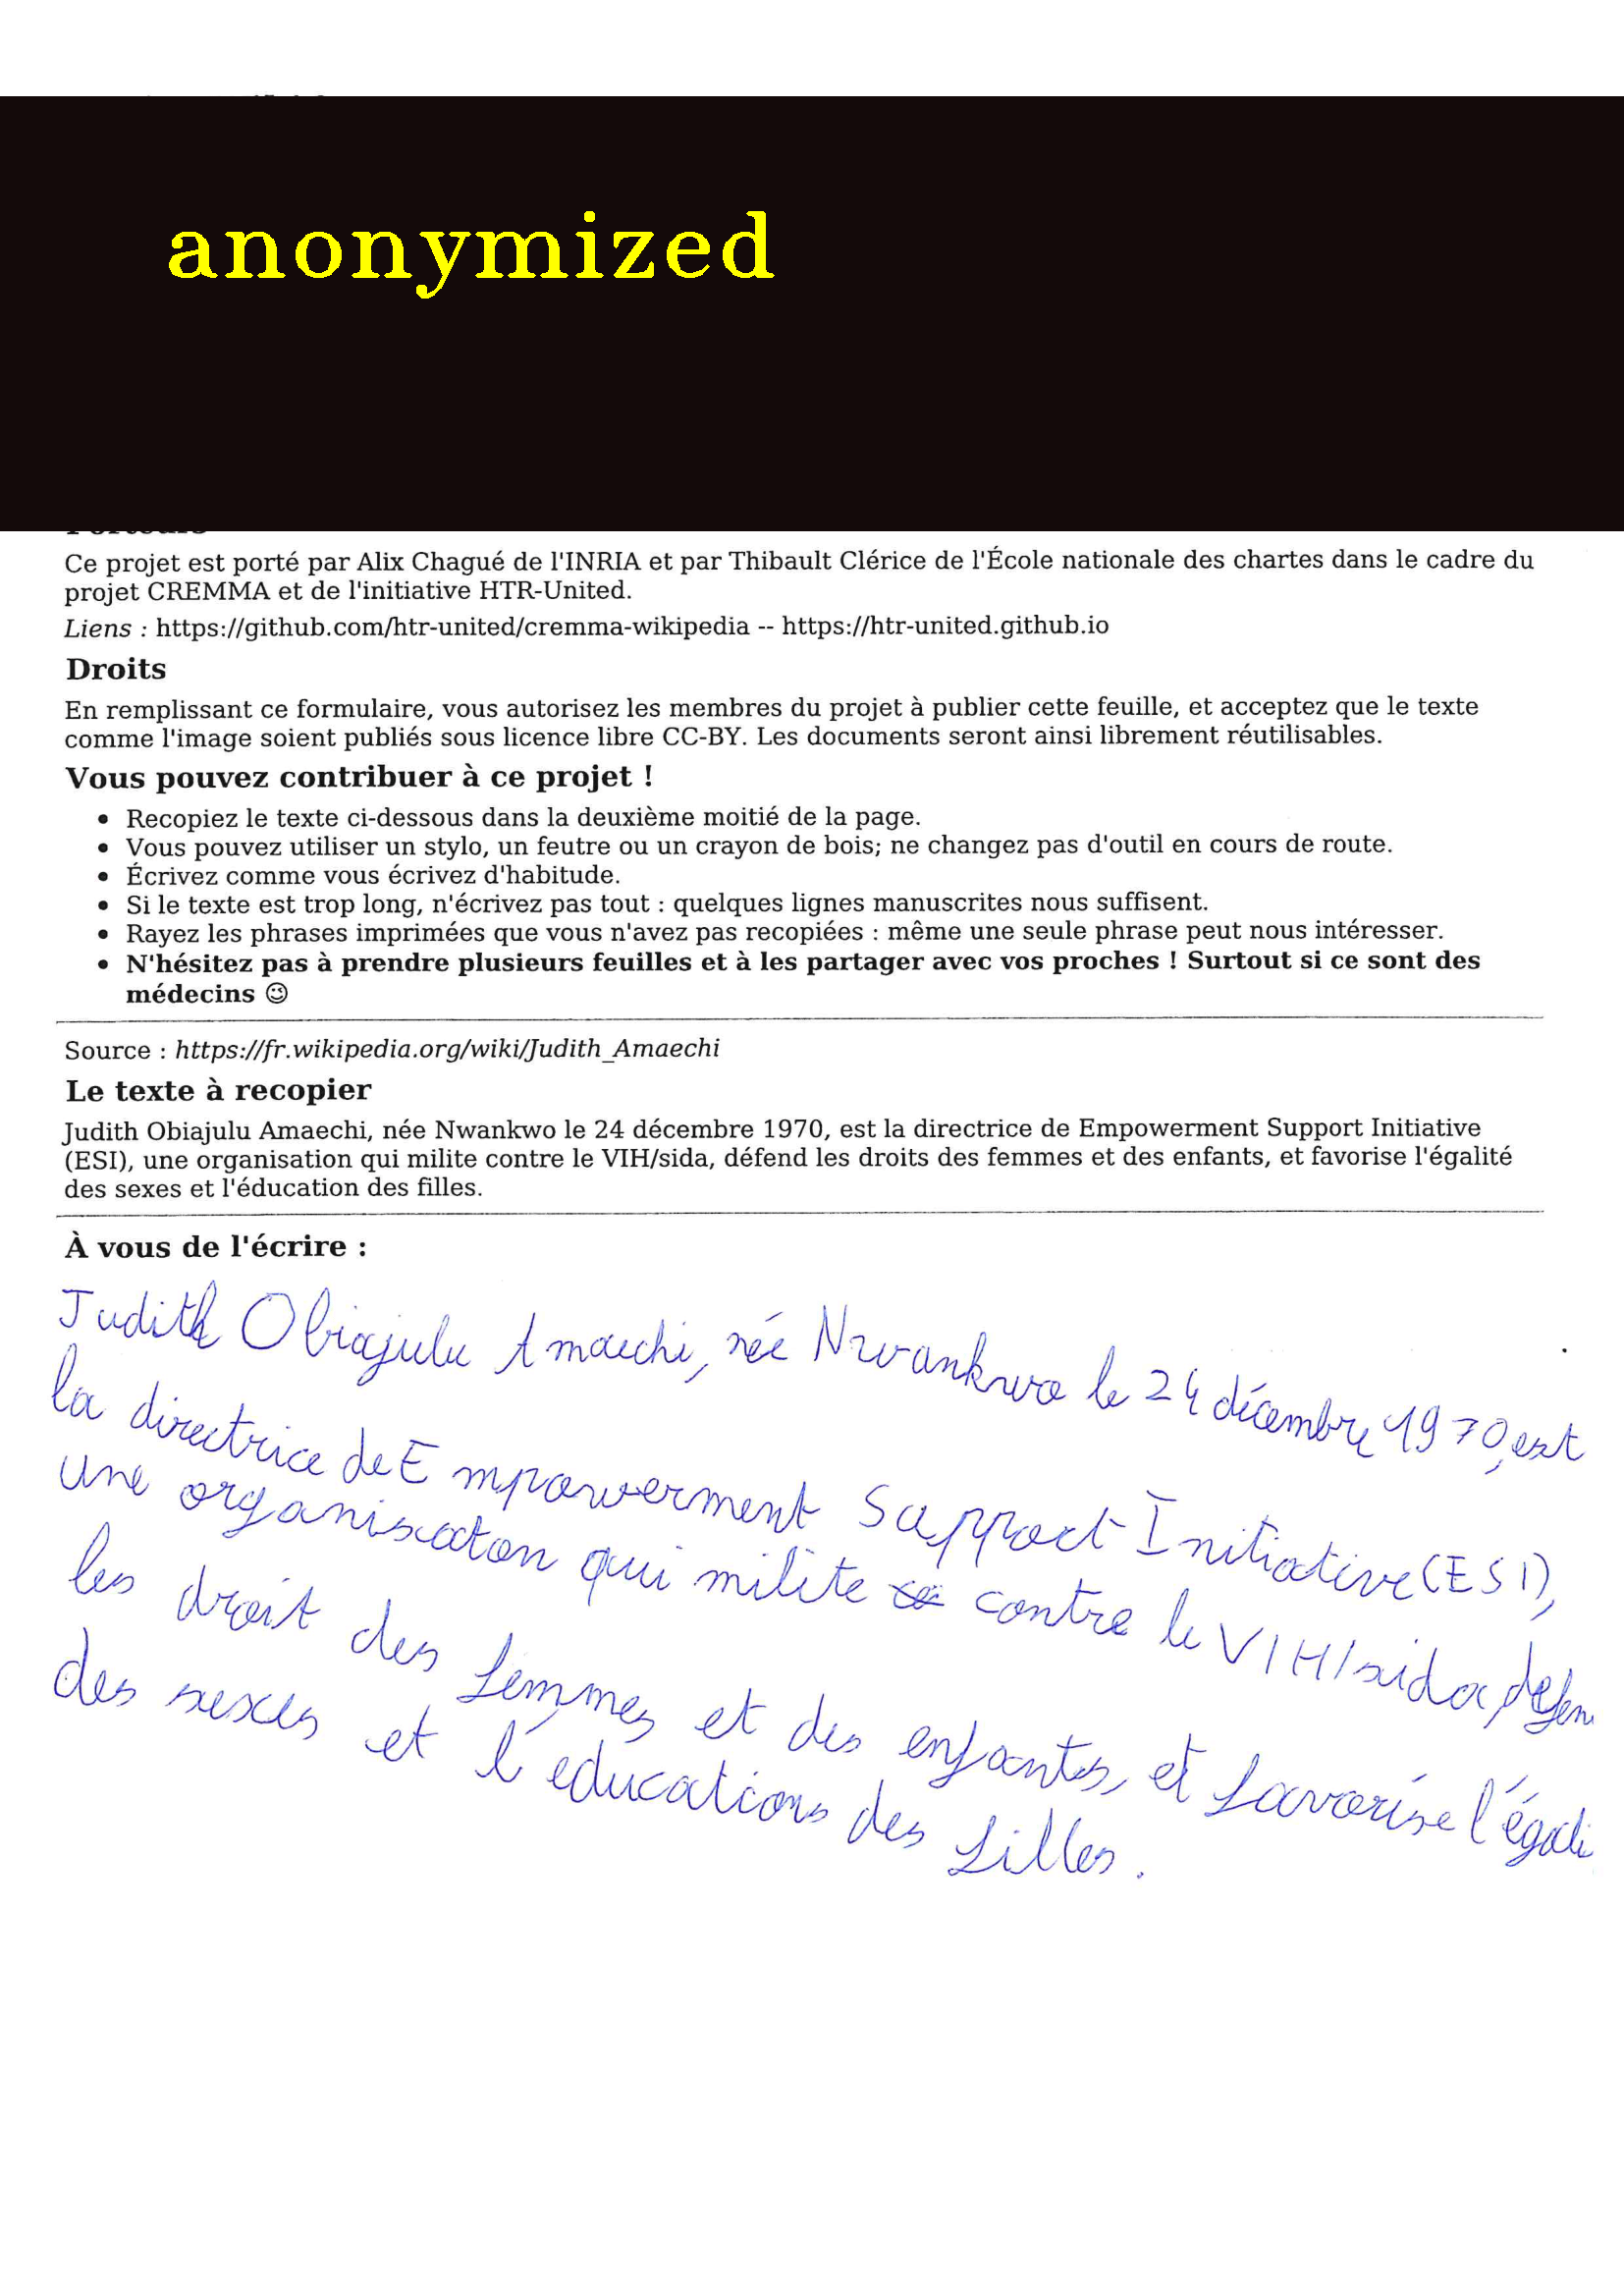 anonymized
Ce projet est porté par Alix Chagué de l'INRIA et par Thibault Clérice de l'École nationale des chartes dans le cadre du
projet CREMMA et de l'initiative HTR-United.
Liens : https://github.com/htr-united/cremma-wikipedia -- https://htr-united.github.io
Droits
En remplissant ce formulaire, vous autorisez les membres du projet à publier cette feuille, et acceptez que le texte
comme l'image soient publiés sous licence libre CC-BY. Les documents seront ainsi librement réutilisables.
Vous pouvez contribuer à ce projet !
• Recopiez le texte ci-dessous dans la deuxième moitié de la page.
• Vous pouvez utiliser un stylo, un feutre ou un crayon de bois; ne changez pas d'outil en cours de route.
• Écrivez comme vous écrivez d'habitude.
• Si le texte est trop long, n'écrivez pas tout : quelques lignes manuscrites nous suffisent.
• Rayez les phrases imprimées que vous n'avez pas recopiées : même une seule phrase peut nous intéresser.
• N'hésitez pas à prendre plusieurs feuilles et à les partager avec vos proches ! Surtout si ce sont des
médecins 😉
Source : https://fr.wikipedia.org/wiki/Judith_Amaechi
Le texte à recopier
Judith Obiajulu Amaechi, née Nwankwo le 24 décembre 1970, est la directrice de Empowerment Support Initiative
(ESI), une organisation qui milite contre le VIH/sida, défend les droits des femmes et des enfants, et favorise l'égalité
des sexes et l'éducation des filles.
À vous de l'écrire :
Judith Obiajulu Amaechi, née Nwankwo le 24 décembre 1970, est
la directrice de Empowerment Support Initiative (ESI),
une organisaton qui milite contre le VIH/sida, défen
les droit des femmes et des enfants, et favorise l'égali
des sexes et l'éducations des filles.